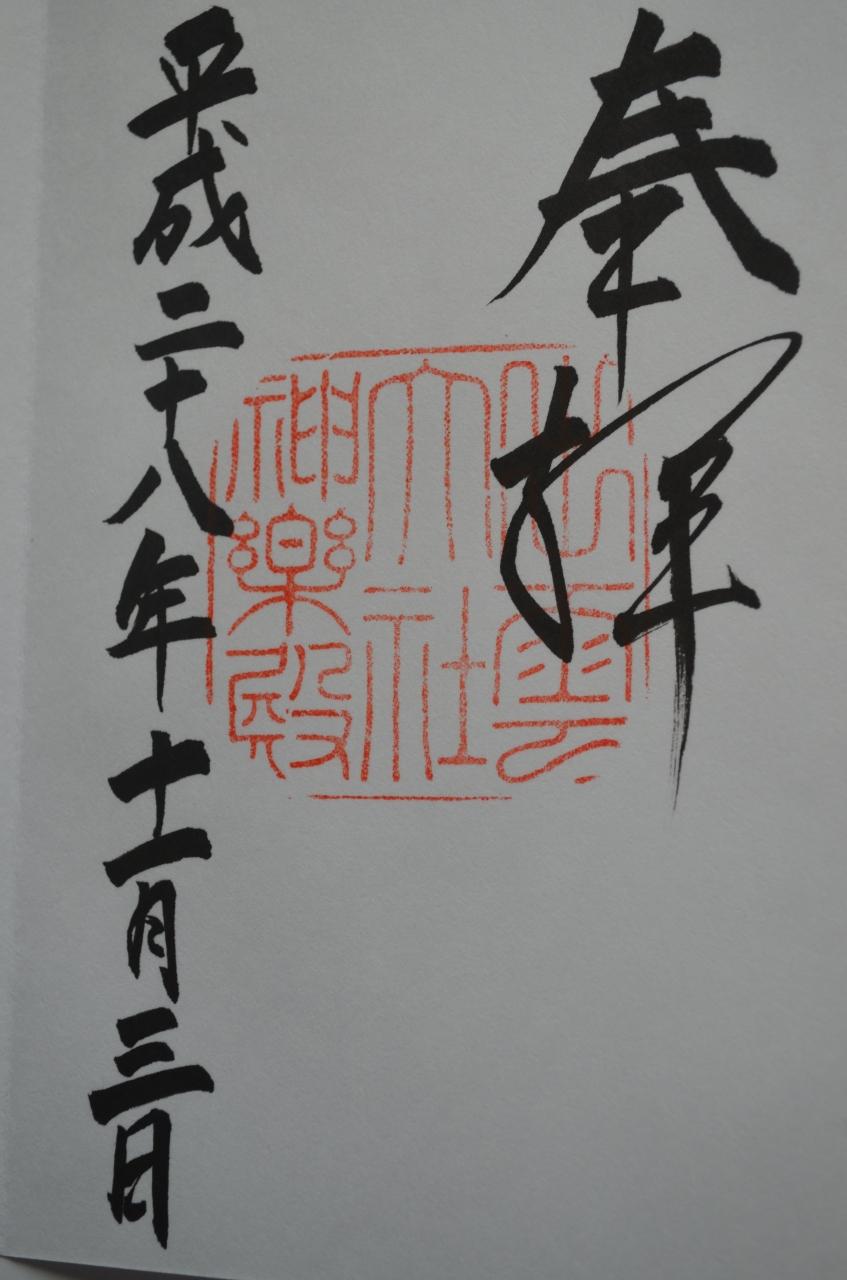 奉拝
出雲
大社
神楽殿
平成二十八年十一月三日